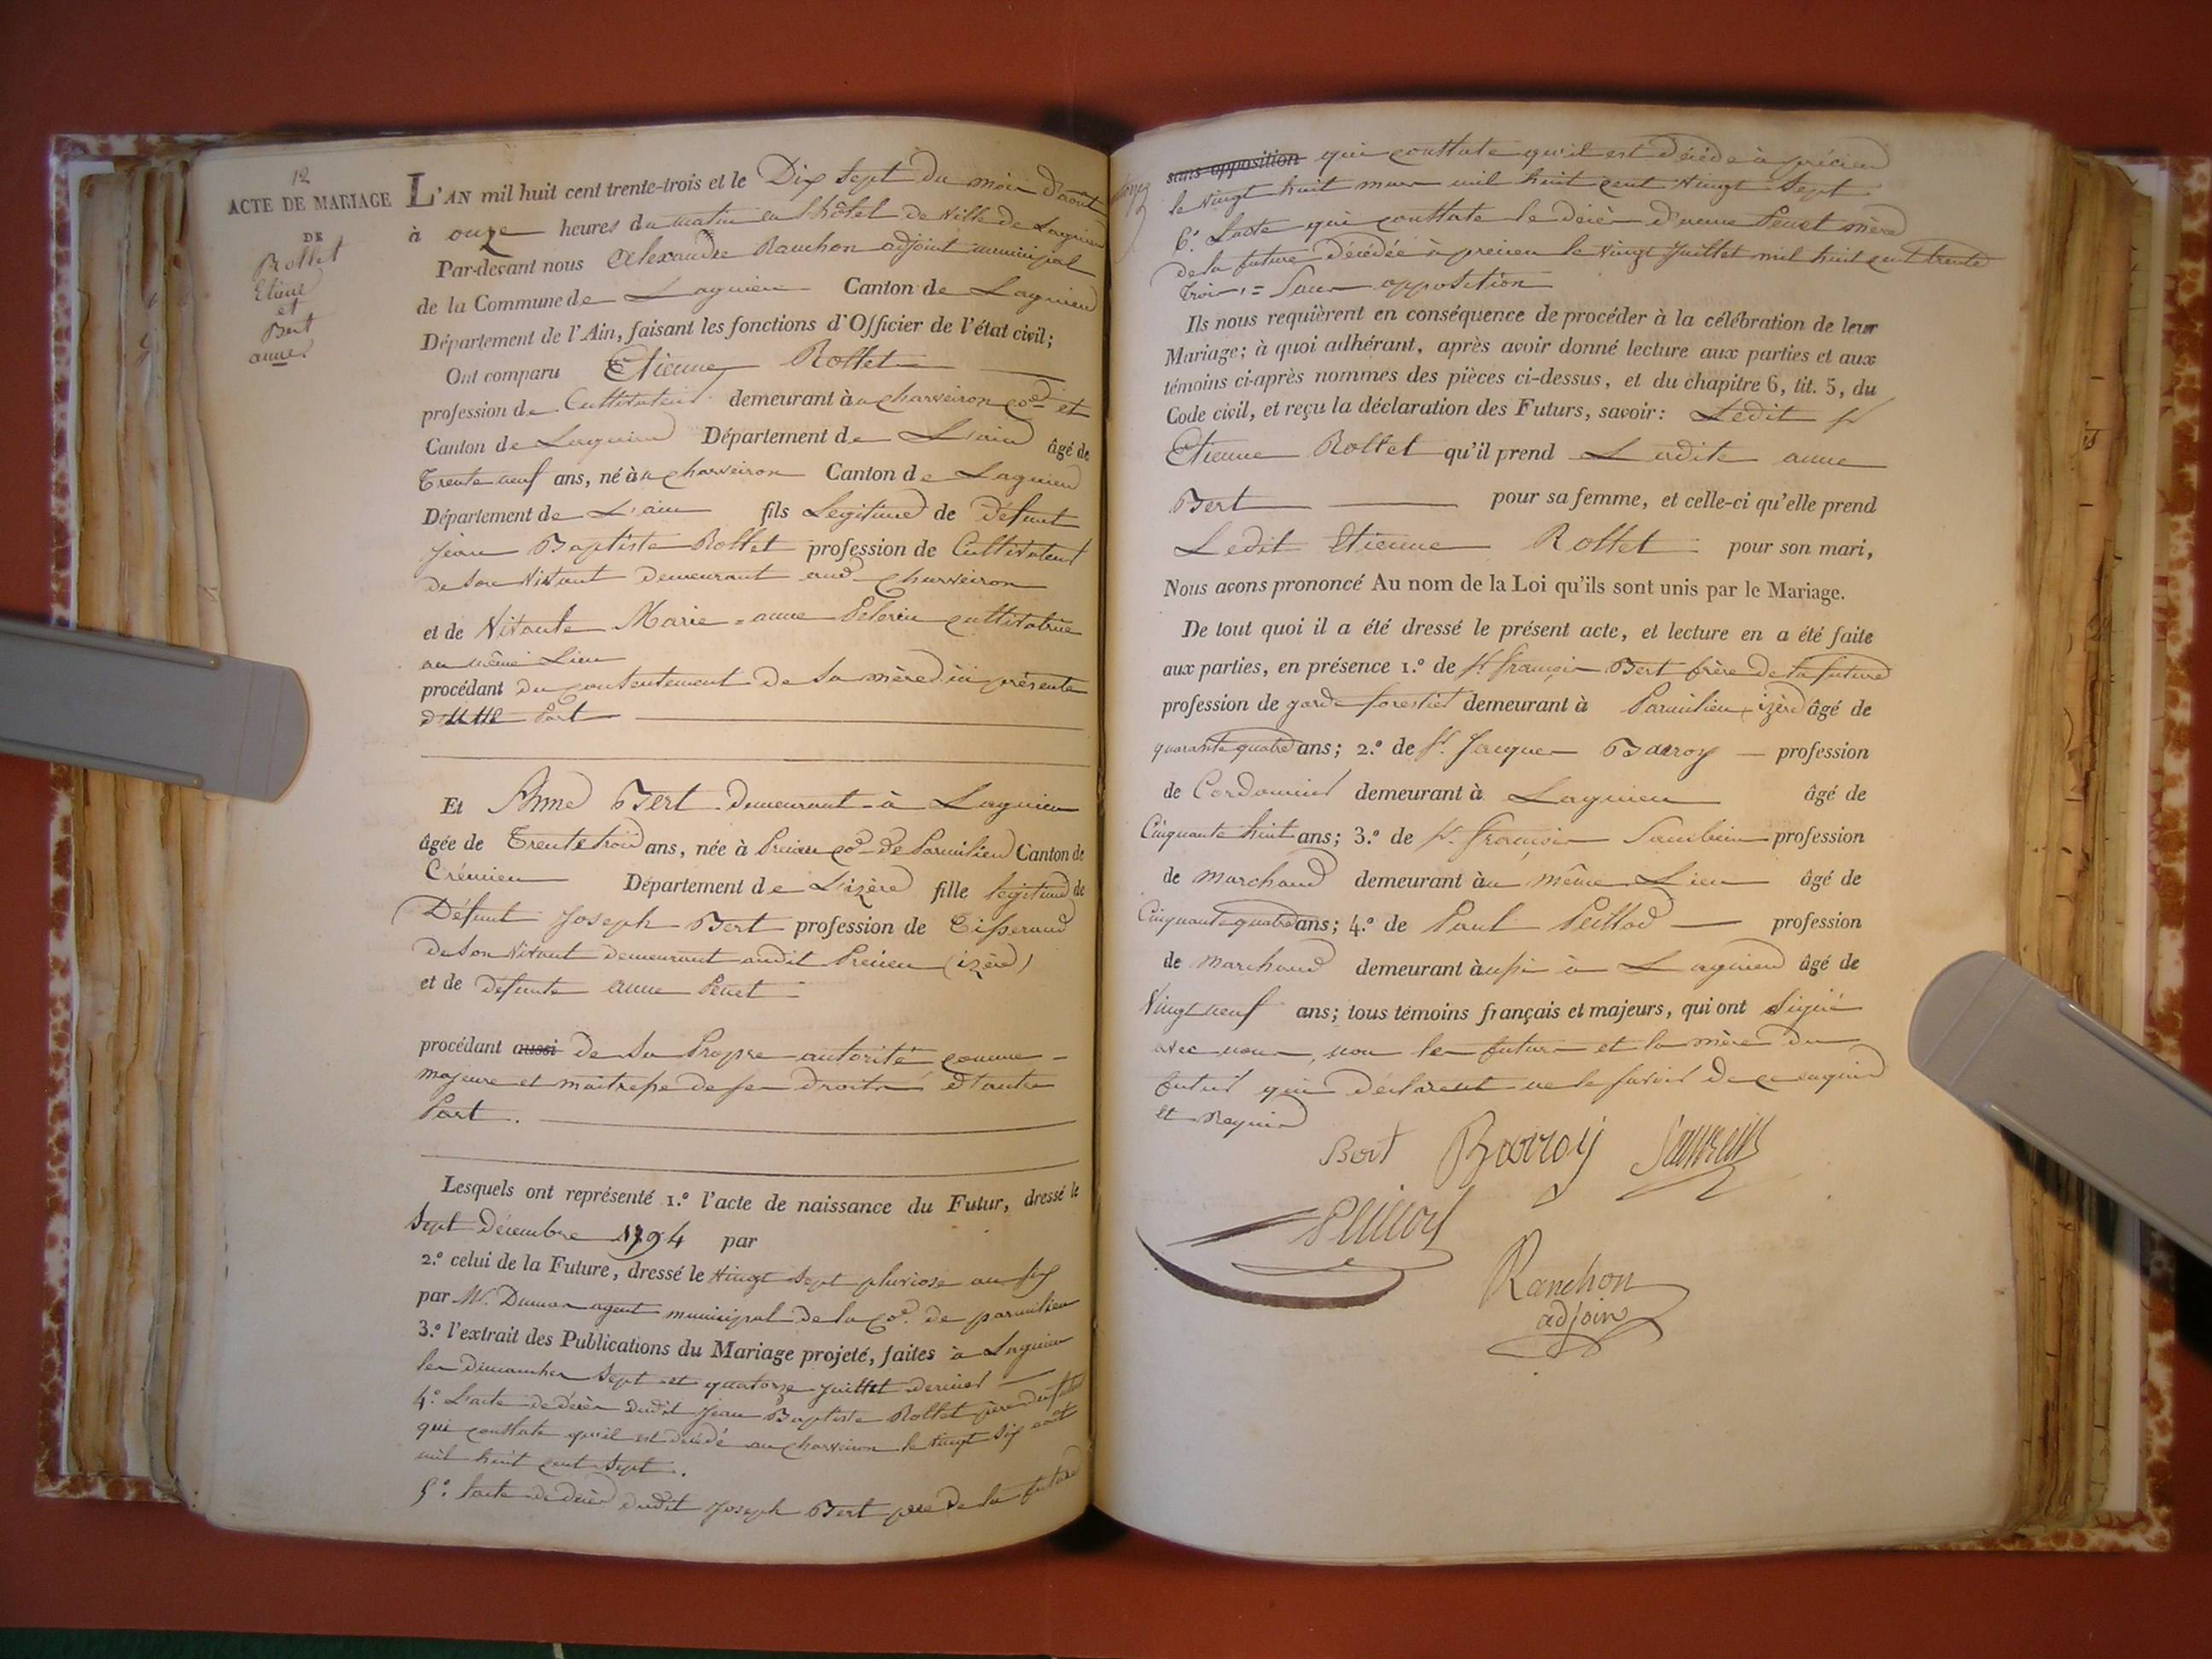 12
ACTE DE MARIAGE
DE
Rollet
Etienne
et
Bert
anne
L'AN mil huit cent trente-trois et le Dix Sept du mois D'aout
à onze heures du matin en l'hôtel de Ville de Lagnieu
Par-devant nous Alexandre Ranchon adjoint municipal
de la Commune de Lagnieu Canton de Lagnieu
Département de l'Ain, faisant les fonctions d'Officier de l'état civil;
Ont comparu Etienne Rollet
profession de Cultivateur demeurant à charveiron coe et
Canton de Lagnieu Département de L'ain âgé de
Trente neuf ans, né à charveiron Canton de Lagnieu
Département de L'ain fils Legitime de Défunt
jean Baptiste Rollet profession de Cultivateur
de Son Vivant demeurant aud charveiron
et de Vivante Marie = anne Pelerin cultivatrice
au même Lieu
procédant du consentement de Sa mère ici présente
d'une Part
Et Anne Bert Demeurant à Lagnieu
âgée de Trente trois ans, née à Preieu coe de Parmilieu Canton de
Crémieu Département de L'izère fille legitime de
Défunt Joseph Bert profession de Tisserand
de Son Vivant demeurant audit Preieu (izère)
et de défunte anne Penet
procédant aussi de Sa Propre autorité comme
majeure et maitresse de ses Droits d'autre
Part.
Lesquels ont représenté 1.º l'acte de naissance du Futur, dressé le
Sept Décembre 1794 par
2.º celui de la Future, dressé le Vingt Sept pluviose an six
par M. Dumas agent municipal de la coe. de parmilieu
3.º l'extrait des Publications du Mariage projeté, faites à Lagnieu
les Dimanches Sept et quatorze juillet dernier
4.º L'acte de décès Dudit Jean Baptiste Rollet père du futur
qui constate qu'il est décédé au charveiron le vingt Six août
mil huit cent Sept.
5.º L'acte de décès dudit Joseph Bert père de la future
sans opposition qui constate qu'il est Décédé à préieu
le vingt huit mars mil huit cent Vingt Sept
6.º L'acte qui constate le décès d'anne Penet mère
de la future Décédée à preieu le Vingt Juillet mil huit cent trente
trois, = Sans opposition
Ils nous requièrent en conséquence de procéder à la célébration de leur
Mariage; à quoi adhérant, après avoir donné lecture aux parties et aux
témoins ci-après nommes des pièces ci-dessus, et du chapitre 6, tit. 5, du
Code civil, et reçu la déclaration des Futurs, savoir: Ledit Sr
Etienne Rollet qu'il prend Ladite anne
Bert pour sa femme, et celle-ci qu'elle prend
Ledit Etienne Rollet pour son mari,
Nous avons prononcé Au nom de la Loi qu'ils sont unis par le Mariage.
De tout quoi il a été dressé le présent acte, et lecture en a été faite
aux parties, en présence 1.º de Sr françois Bert frère de la future
profession de garde forestier demeurant à Parmilieu izère âgé de
quarante quatre ans; 2.º de Sr. Jacques Barroy profession
de Cordonnier demeurant à Lagnieu âgé de
Cinquante huit ans; 3.º de Sr. françois profession
de Marchand demeurant au même Lieu âgé de
Cinquante quatre ans; 4.º de Paul Peillod profession
de Marchand demeurant aussi à Lagnieu âgé de
Vingt neuf ans; tous témoins français et majeurs, qui ont Signé
avec nous, non les futurs et la mère du
futur qui déclarent ne le savoir de ce enquis
et Requis
Bert Barroy
Peillod
Ranchon
adjoin